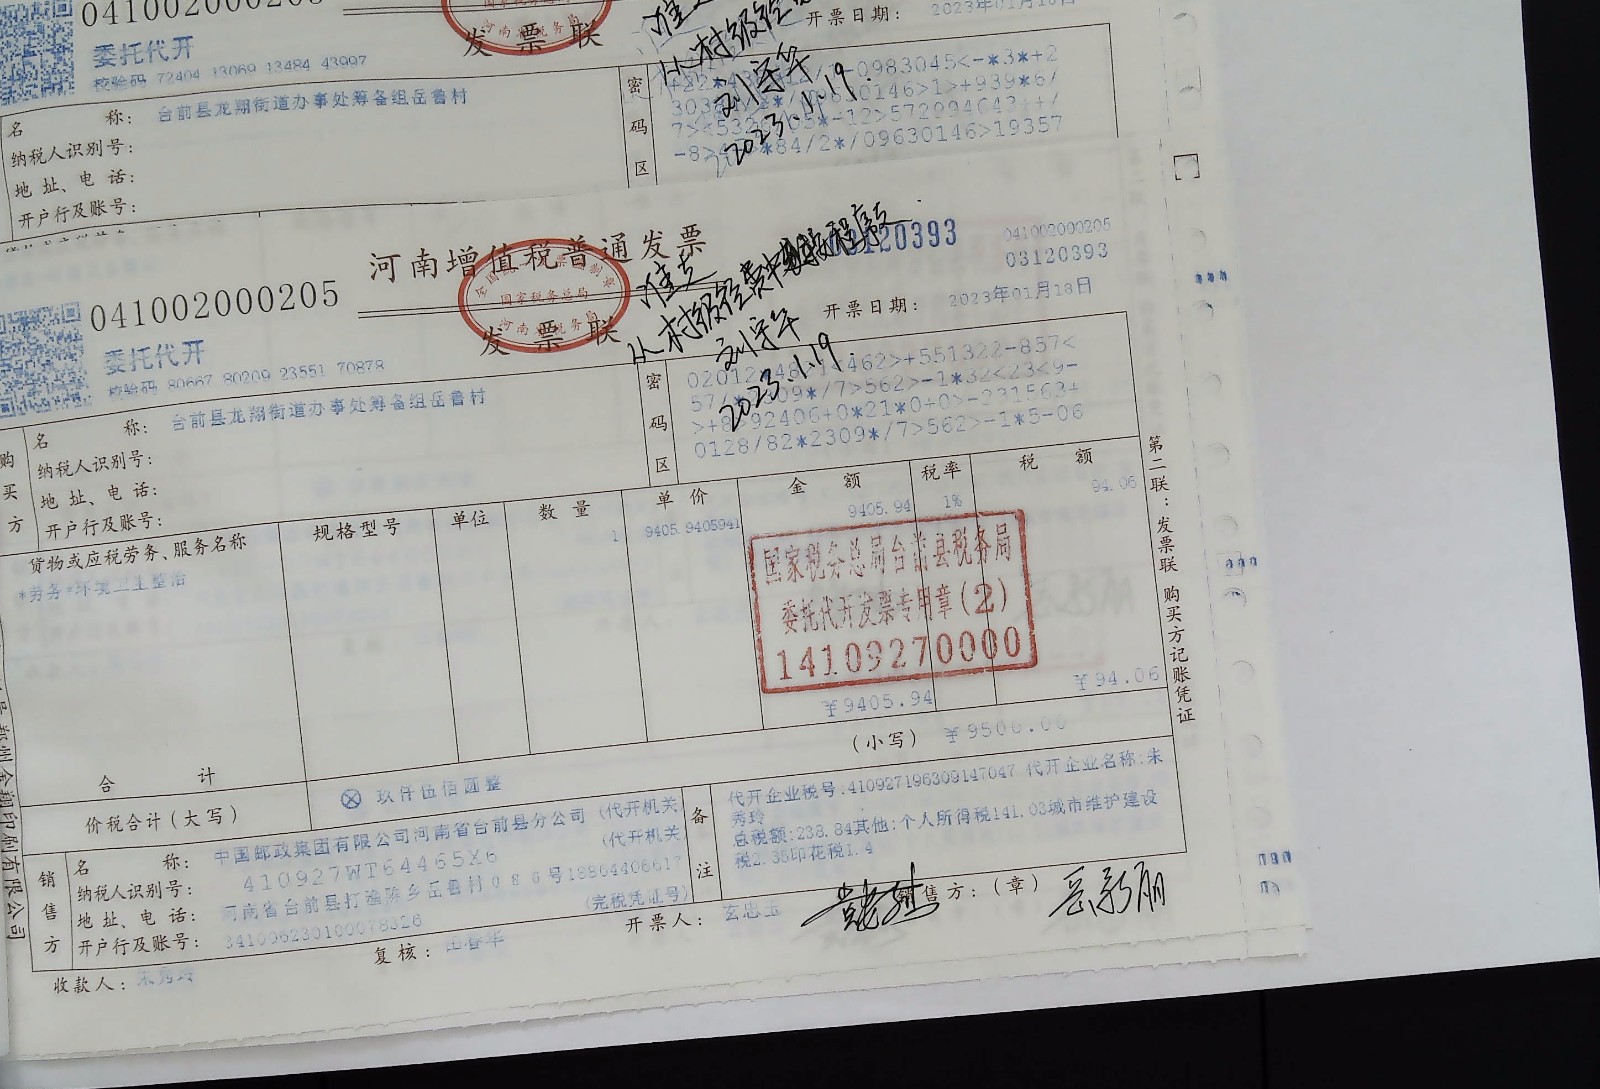 041002000205
委托代开
校验码 72404 13069 13484 43997
发 票 联
开票日期: 2023年01月18日
名 称: 台前县龙翔街道办事处筹备组岳鲁村
纳税人识别号:
地 址、电 话:
开户行及账号:
密码区
2023.1.19.
河南增值税普通发票
041002000205
国家税务总局
发 票 联
委托代开
校验码 80667 80209 23551 70878
准支
从村级经费中按程序支
刘守军
2023.1.19.
03120393
041002000205
03120393
开票日期: 2023年01月18日
购买方
名 称: 台前县龙翔街道办事处筹备组岳鲁村
纳税人识别号:
地 址、电 话:
开户行及账号:
密码区
>+8>92406+0*21*0+0>-231563+
0128/82*2309*/7>562>-1*5-06
货物或应税劳务、服务名称 规格型号 单位 数 量 单 价 金 额 税率 税 额
*劳务*环境卫生整治 1 9405.9405941 9405.94 1% 94.06
国家税务总局台前县税务局
委托代开发票专用章(2)
14109270000
合 计 ¥9405.94 ¥94.06
价税合计(大写) ⊗ 玖仟伍佰圆整 (小写) ¥9500.00
销售方
名 称: 中国邮政集团有限公司河南省台前县分公司 (代开机关
纳税人识别号: 410927WT64465X6 (代开机关
地 址、电 话: 河南省台前县打渔陈乡岳鲁村086号18864406617
开户行及账号: 341006230100078326 (完税凭证号)
备注
代开企业税号:410927196309147047 代开企业名称:朱
秀玲
总税额:238.84其他:个人所得税141.03城市维护建设
税2.35印花税1.4
收款人: 朱秀玲 复核: 开票人: 玄忠玉 销售方:(章)
第二联:发票联 购买方记账凭证